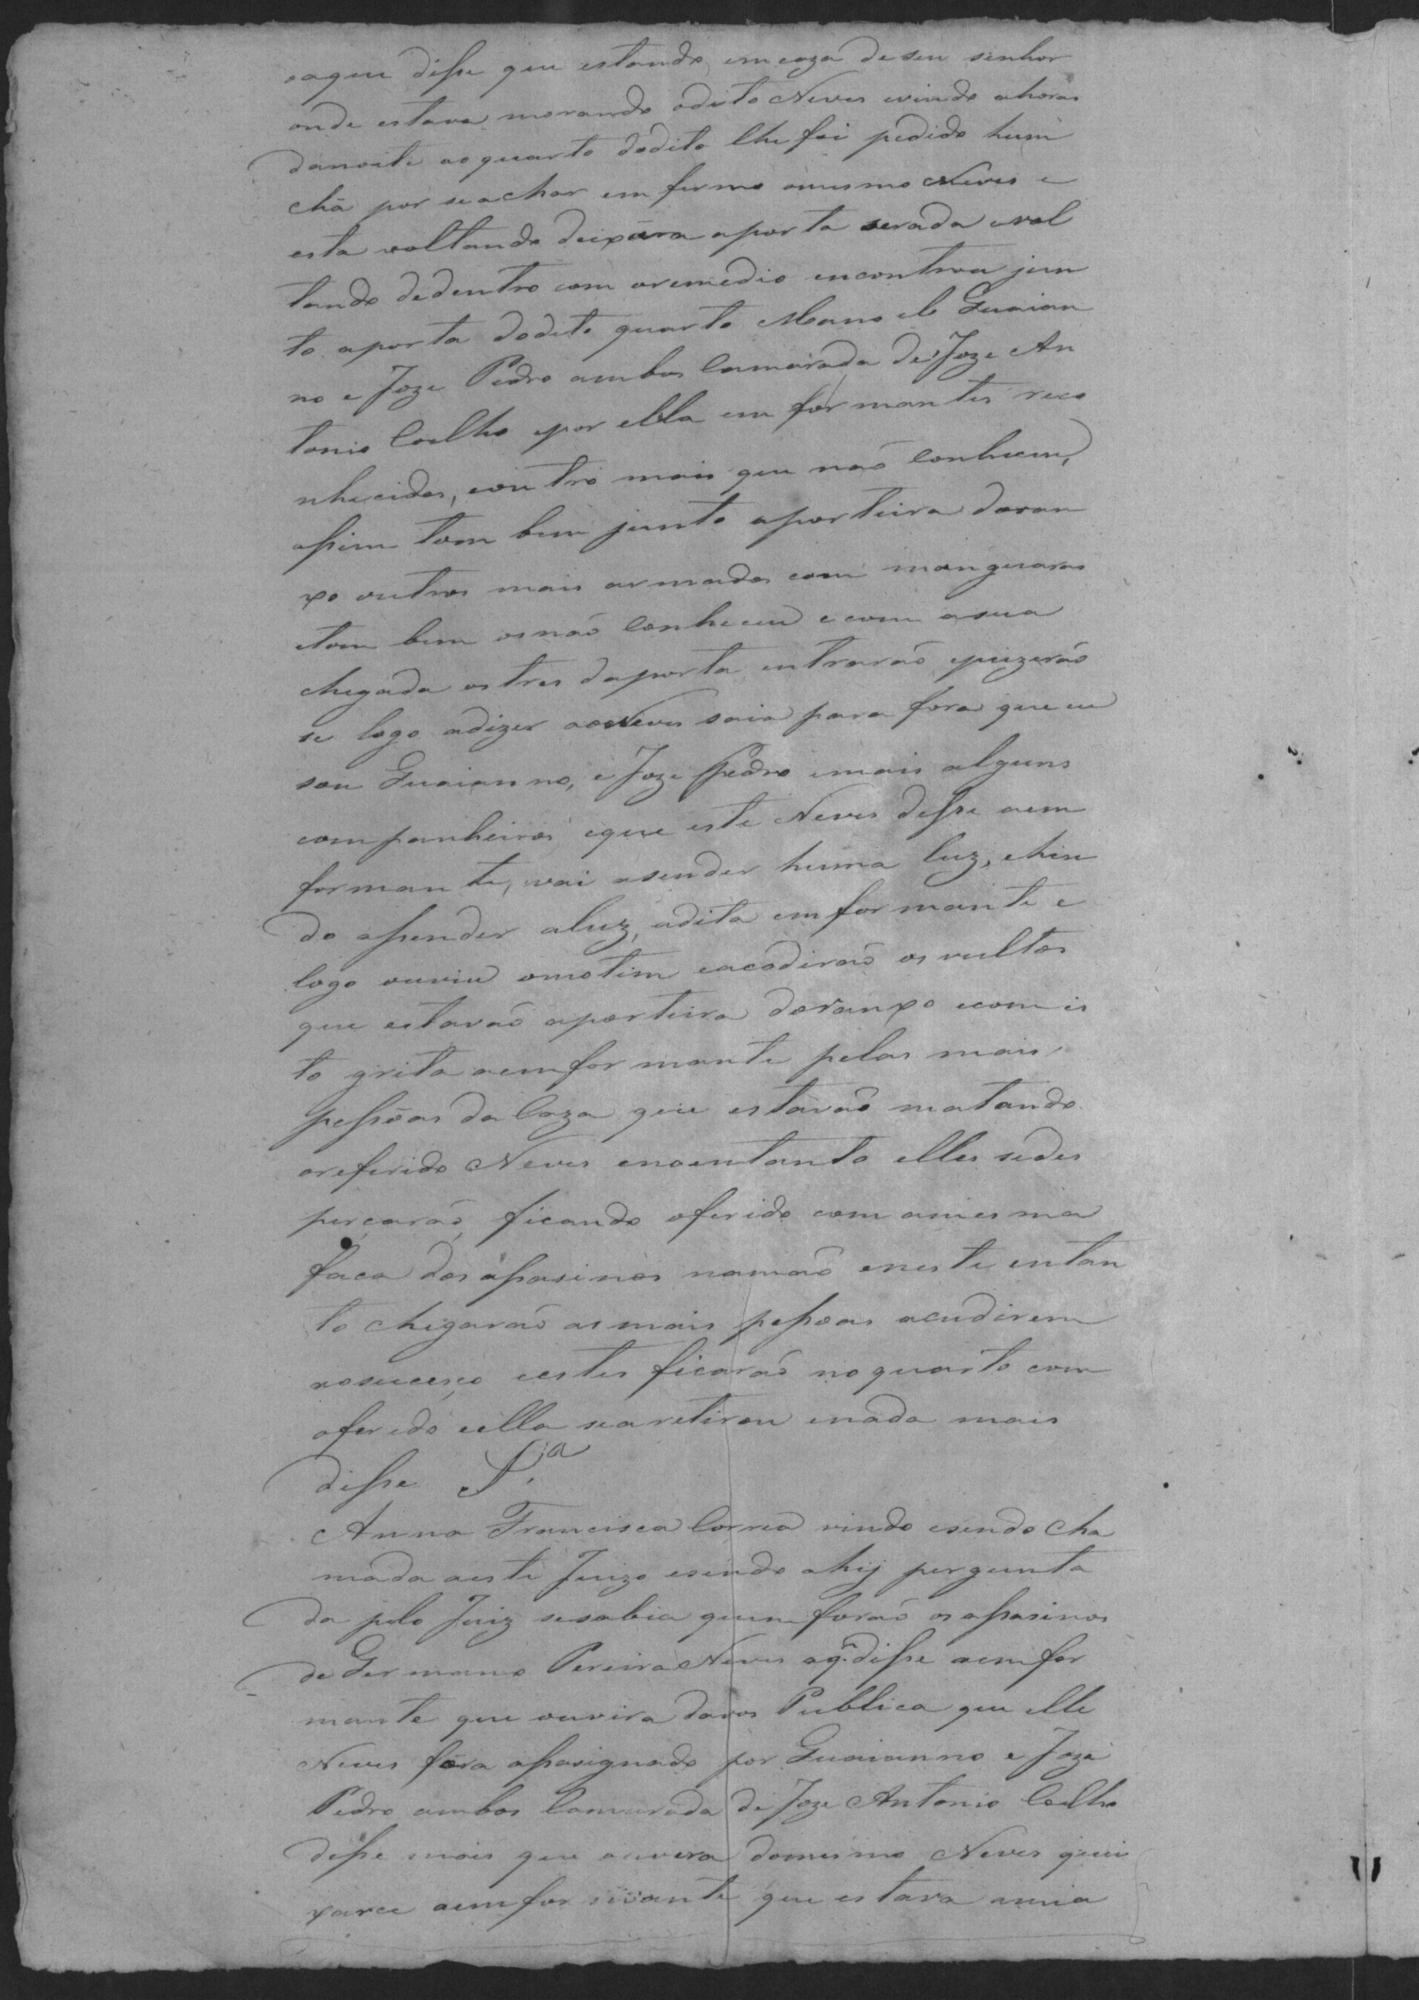 oaque disse que estando em caza deseu senhor
onde estava morando odito Neves evindo ahoras
danoite aoquarto dodito lhe foi pedido hum
chá por seachar emfermo omesmo Neves e
esta voltando deixára aporta serada evol
tando dedentro com oremedio encontrou jun
to aporta dodito quarto Manoel Guaian
no e Joze Pedro ambos Camarada de Joze An
tonio Coelho epor ella emformantes reco
nhecidos, eoutro mais que não Conheceu,
assim tom bem junto aporteira doran
xo outros mais armados com manguaras
etom bem osnão Conheceu ecom asua
chegada ostres daporta entrarão epuzerão
se logo adizer aoNeves saia para fora que eu
sou Guaianno, e Joze Pedro emais alguns
companheiros eque este Neves disse aem
formante, vai asender huma luz, ehin
do assender aluz, adita emformante e
logo ouviu omotim eacodirão os vultos
que estavão aporteira doranxo ecom is
to grita aemformante pelas mais
pessôas da Caza que estavão matando
oreferido Neves enoentanto elles sedes
perçarão, ficando oferido com amesma
faca dos assasinos namão eneste entan
to chegarão asmais pessoas acudirem
aosuceço eestes ficarão noquarto com
oferido eella searetirou enada mais
disse
Anna Francisca Correa vindo esendo cha
mada aeste Juizo esendo ahij pergunta
da pelo Juiz sesabia quem forão os assasinos
de Germano Pereira Neves aq. disse aemfor
mante que ouvira davos Publica que elle
Neves fôra assasignado por Guaianno e Joze
Pedro ambos Camarada de Joze Antonio Coelho
disse mais que ouvera domesmo Neves quei
xarce aemformante que estava amia